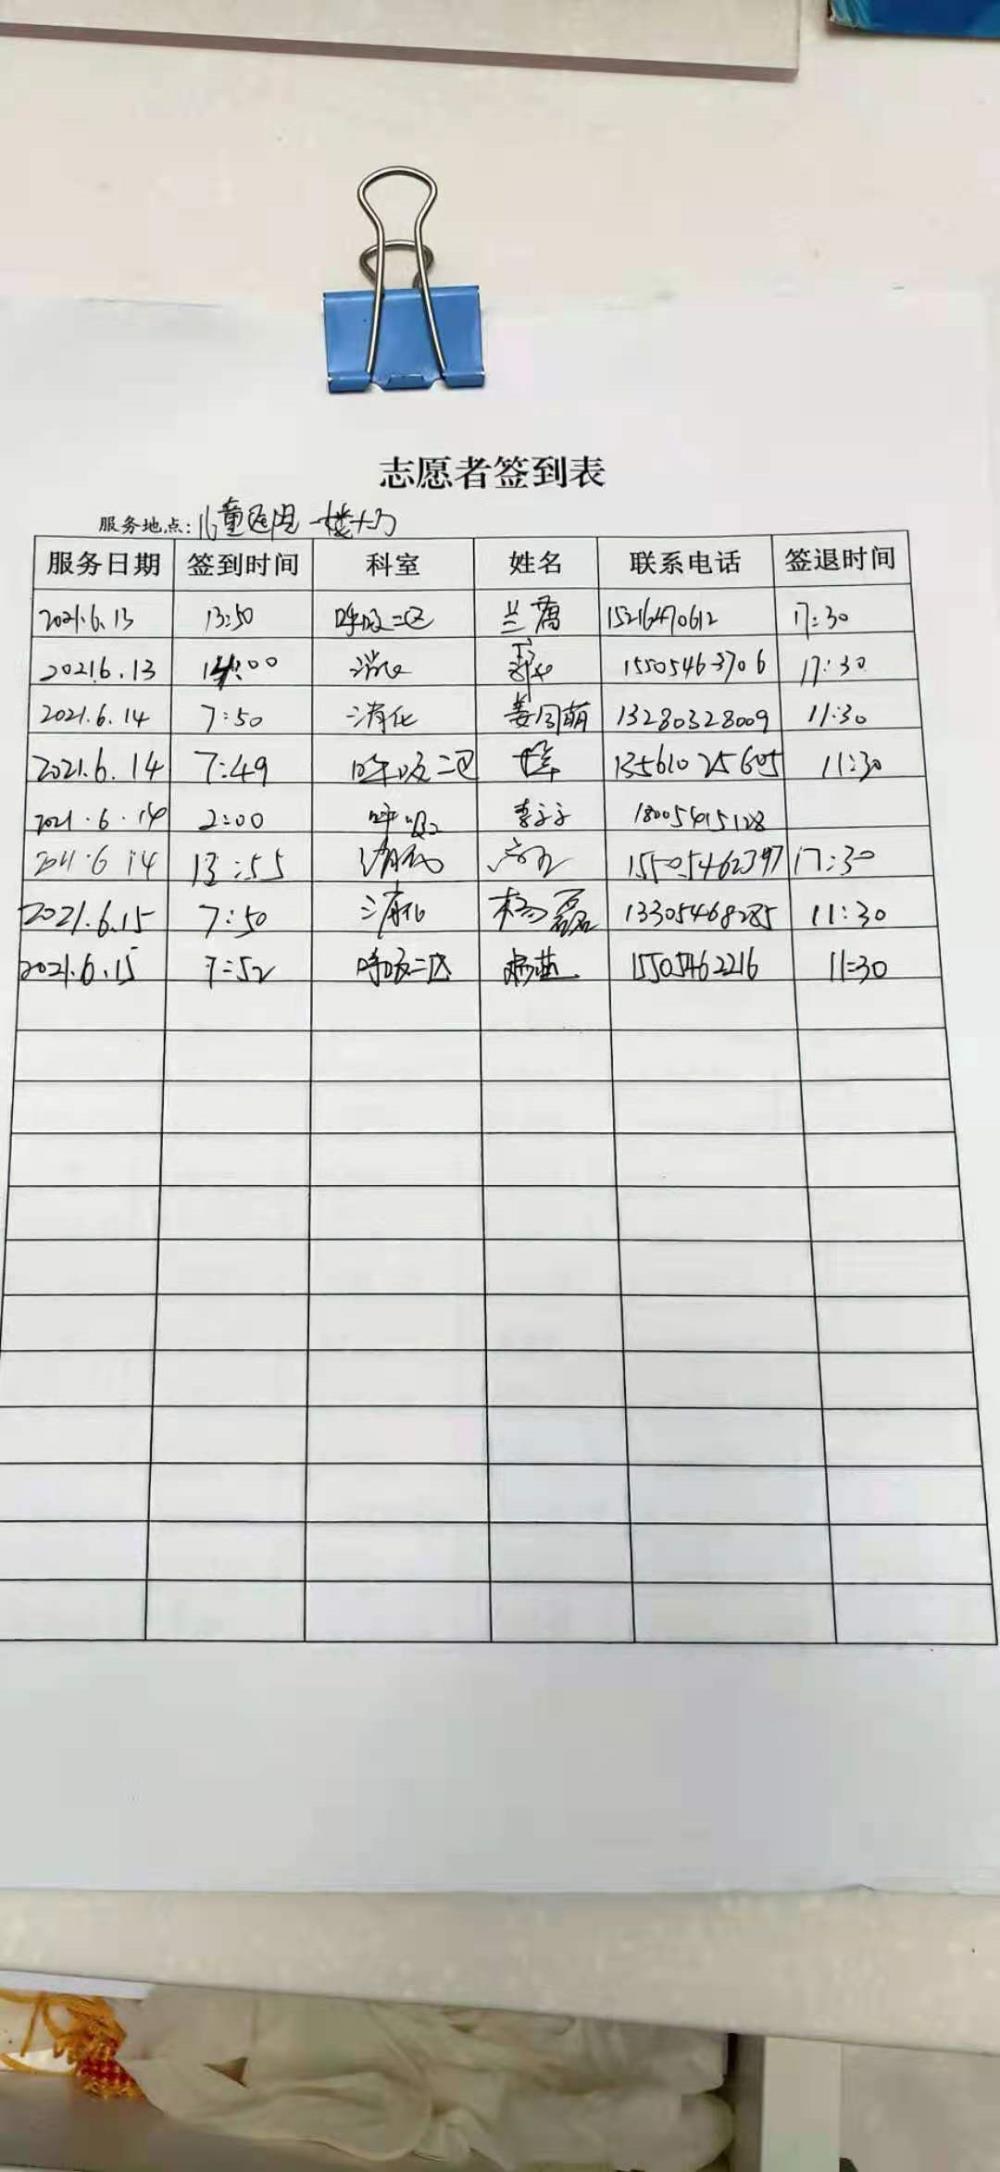 志愿者签到表
服务地点: 儿童医院 一楼大厅
服务日期 签到时间 科室 姓名 联系电话 签退时间
2021.6.13 13:50 呼吸二区 兰 15216470612 17:30
2021.6.13 14:00 消化 15505463706 17:30
2021.6.14 7:50 消化 姜同萌 13280328009 11:30
2021.6.14 7:49 呼吸二区 13561025605 11:30
2021.6.14 2:00 呼吸 李子子
2021.6.14 13:55 消化 15505462397 17:30
2021.6.15 7:50 消化 杨磊 13305468285 11:30
2021.6.15 7:52 呼吸二区 15505462216 11:30